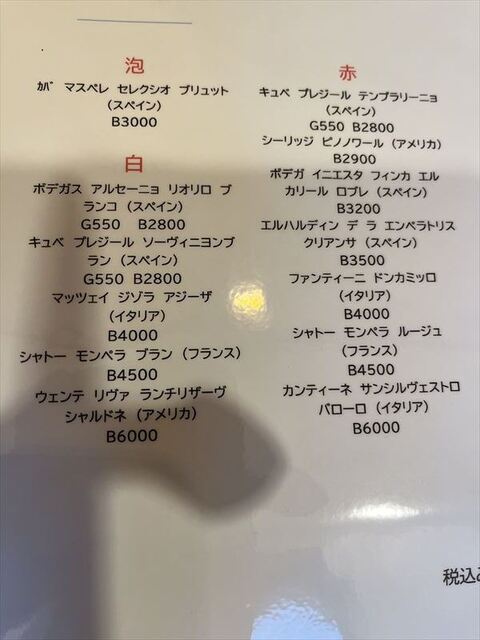 泡
ｶﾊﾞ マスペレ セレクシオ ブリュット
（スペイン）
B3000
白
ボデガス アルセーニョ リオリロ ブ
ランコ（スペイン）
G550 B2800
キュベ プレジール ソーヴィニヨンブ
ラン（スペイン）
G550 B2800
マッツェイ ジゾラ アジーザ
（イタリア）
B4000
シャトー モンペラ ブラン（フランス）
B4500
ウェンテ リヴァ ランチリザーヴ
シャルドネ（アメリカ）
B6000
赤
キュベ プレジール テンプラリーニョ
（スペイン）
G550 B2800
シーリッジ ピノノワール（アメリカ）
B2900
ボデガ イニエスタ フィンカ エル
カリール ロブレ（スペイン）
B3200
エルハルディン デ ラ エンペラトリス
クリアンサ（スペイン）
B3500
ファンティーニ ドンカミッロ
（イタリア）
B4000
シャトー モンペラ ルージュ
（フランス）
B4500
カンティーネ サンシルヴェストロ
バローロ（イタリア）
B6000
税込